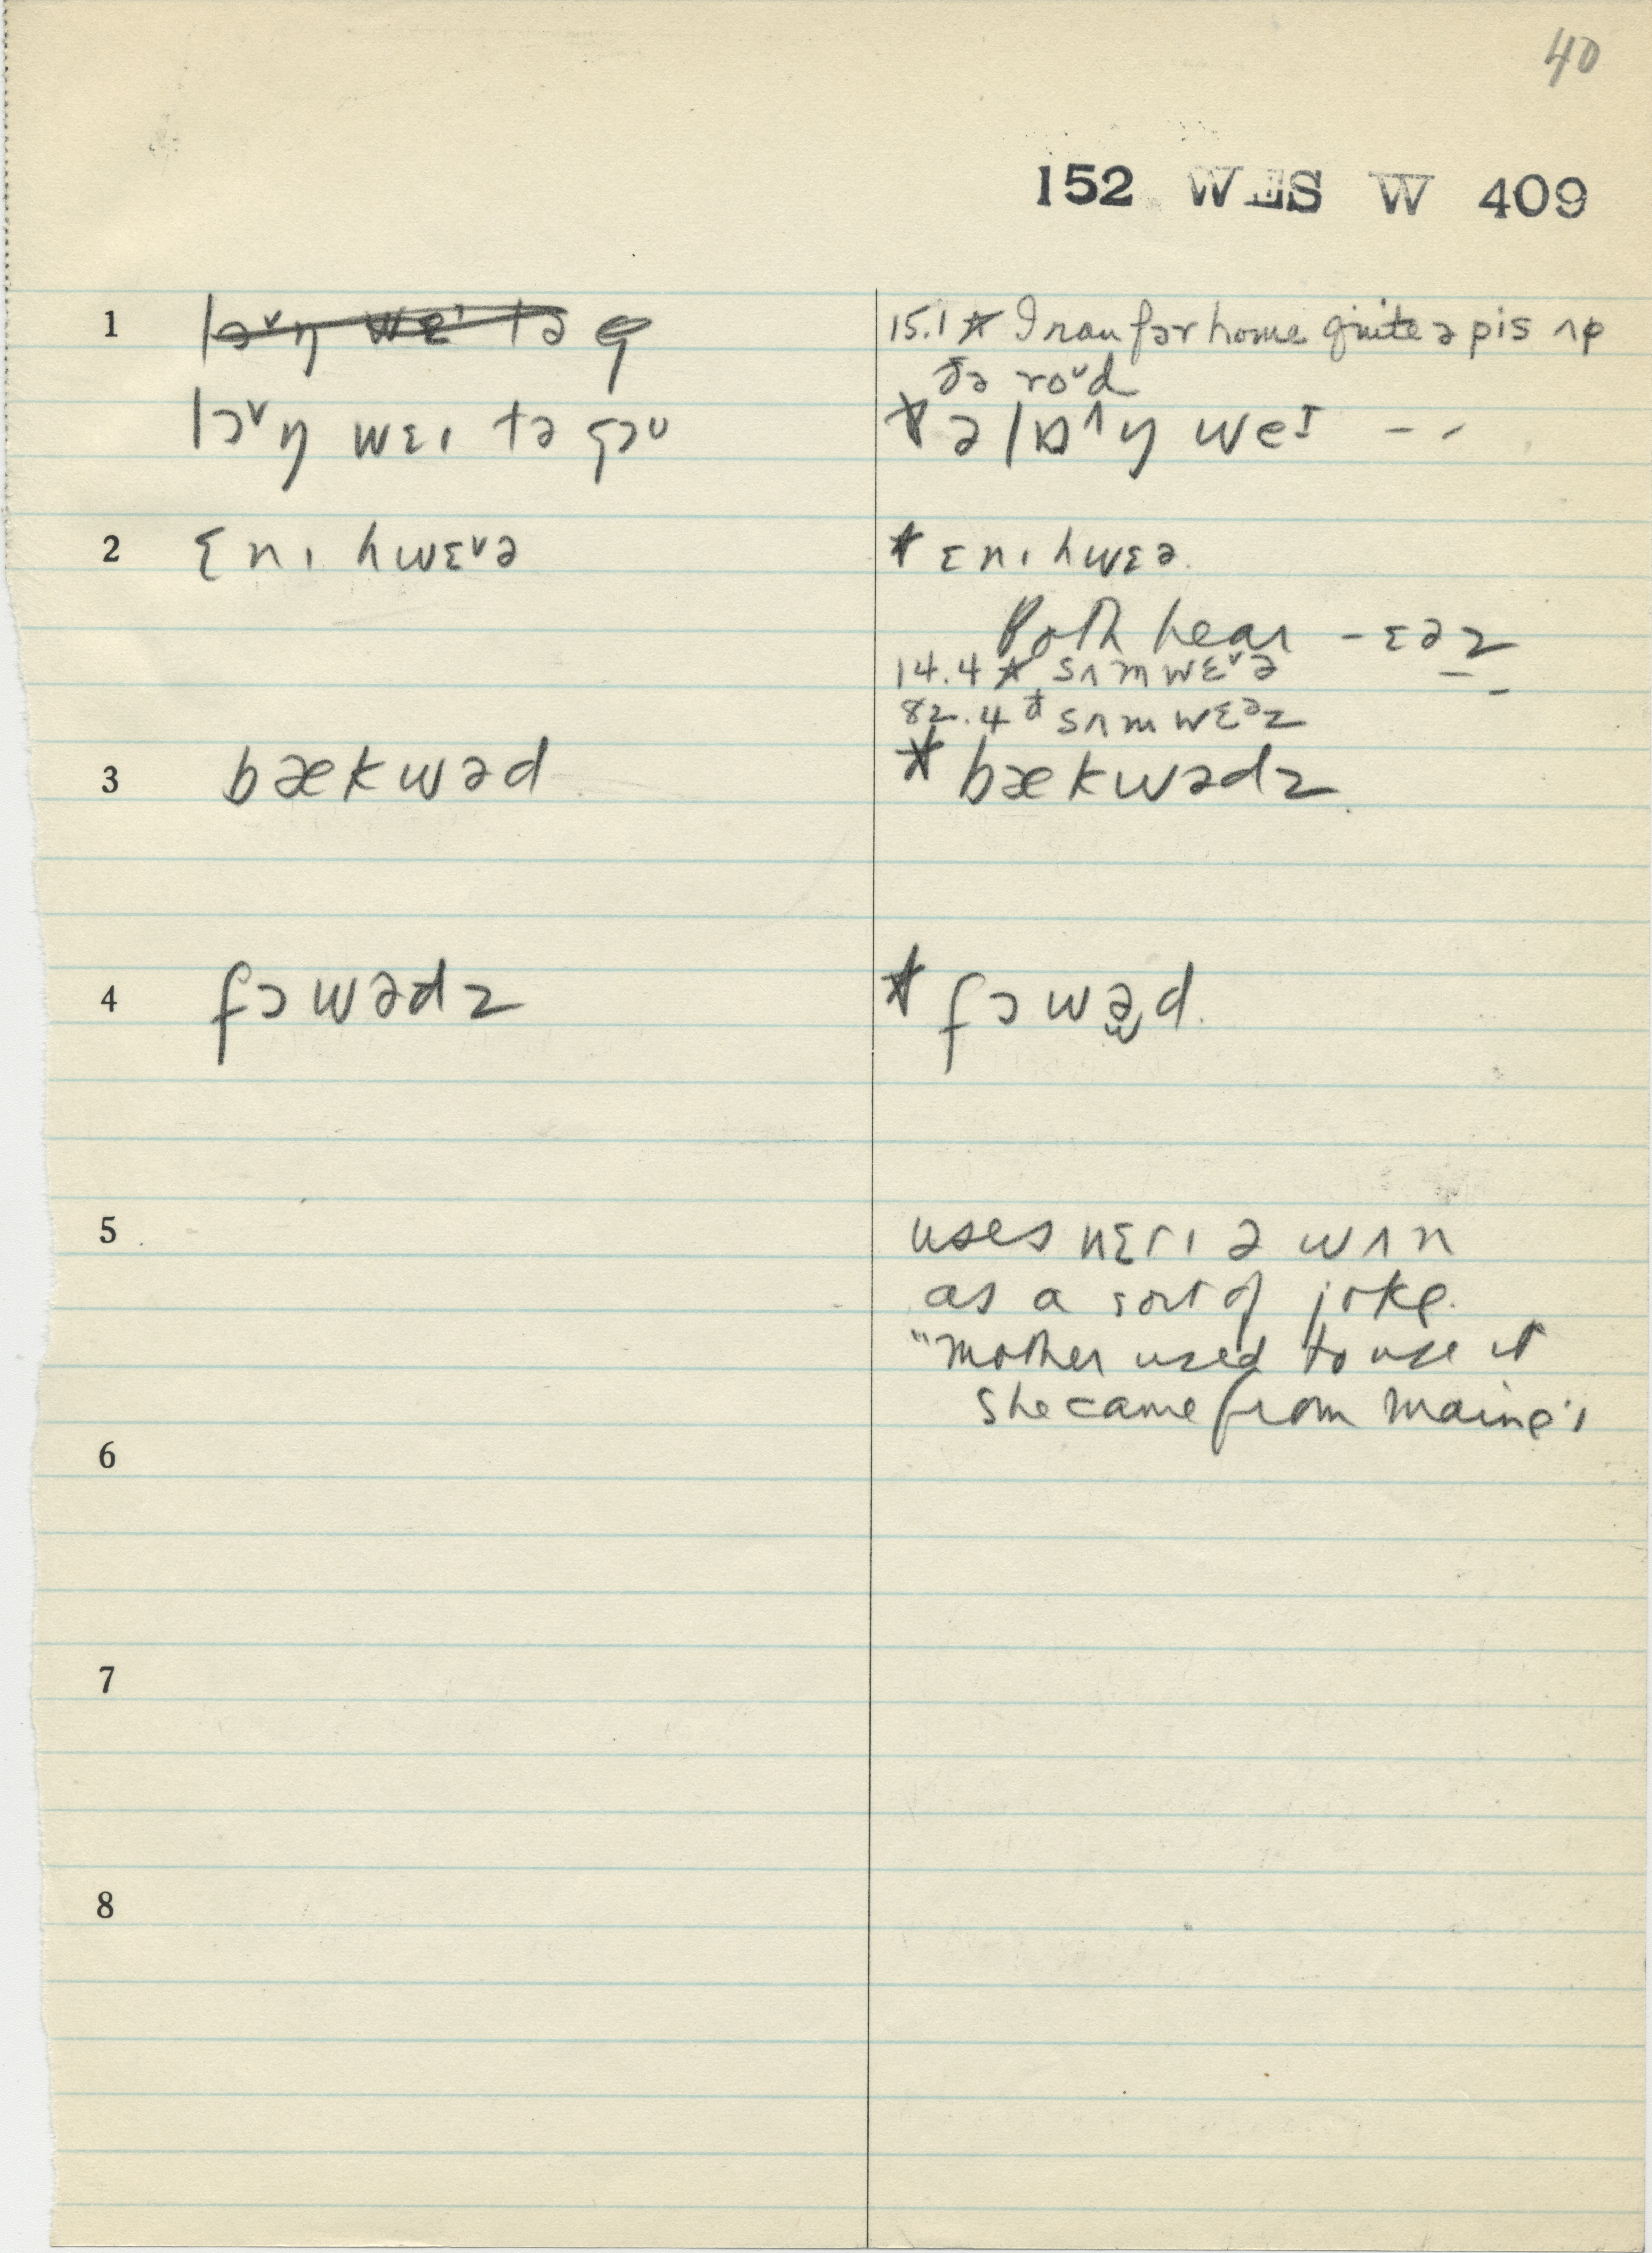 40
152 WES W 409
1 lɔ˅ŋ wɛɩ tə g
15.1 ☆ I ran fər home quite ə pis ʌp
ðə ro˅d
lɔ˅ŋ wɛɩ tə goᴜ
☆ ə lɒ˄ŋ weɪ – –
2 ɛnɩ hwɛ˅ə
☆ ɛnɩ hwɛə
Both hear – ɛəz
14.4 ☆ sʌmwɛ˅ə
82.4 ☆ sʌmwɛəz
3 bækwəd
☆ bækwədz
4 fɔwədz
☆ fɔwə̫d
5 uses nɛrɩ ə wʌn
as a sort of joke.
"mother used to use it
she came from Maine"
6
7
8